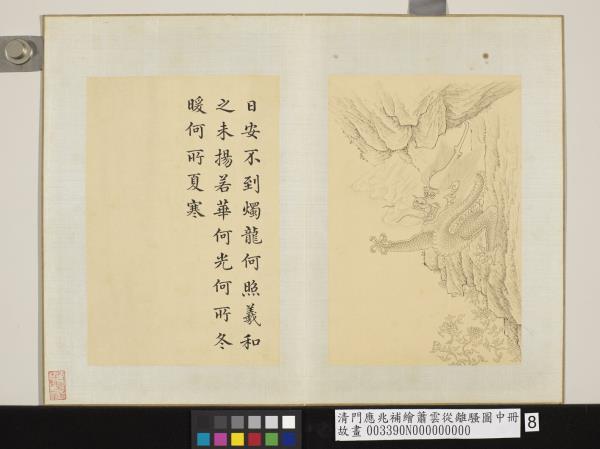 日安不到燭龍何照羲和
之未揚若華何光何所冬
暖何所夏寒
清門應兆補繪蕭雲從離騷圖中冊
故畫 003390N000000000
8